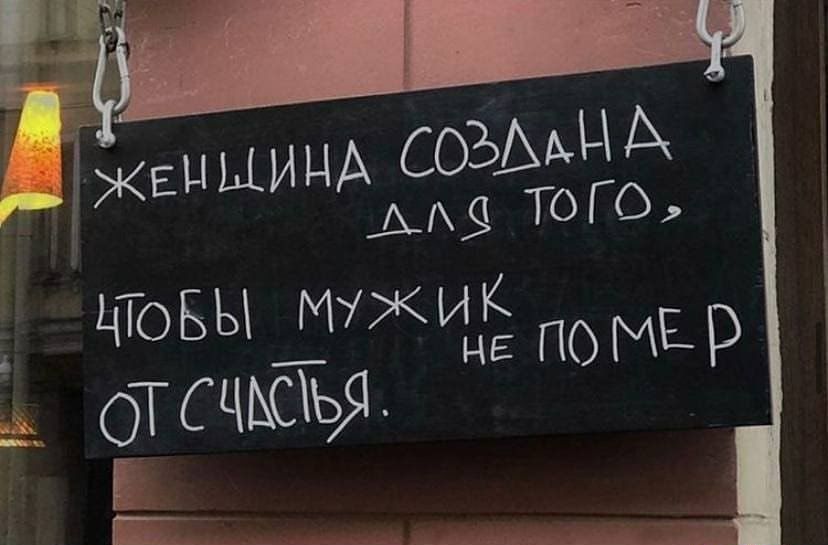 ЖЕНЩИНА СОЗДАНА
ДЛЯ ТОГО,
ЧТОБЫ МУЖИК
НЕ ПОМЕР
ОТ СЧАСТЬЯ.